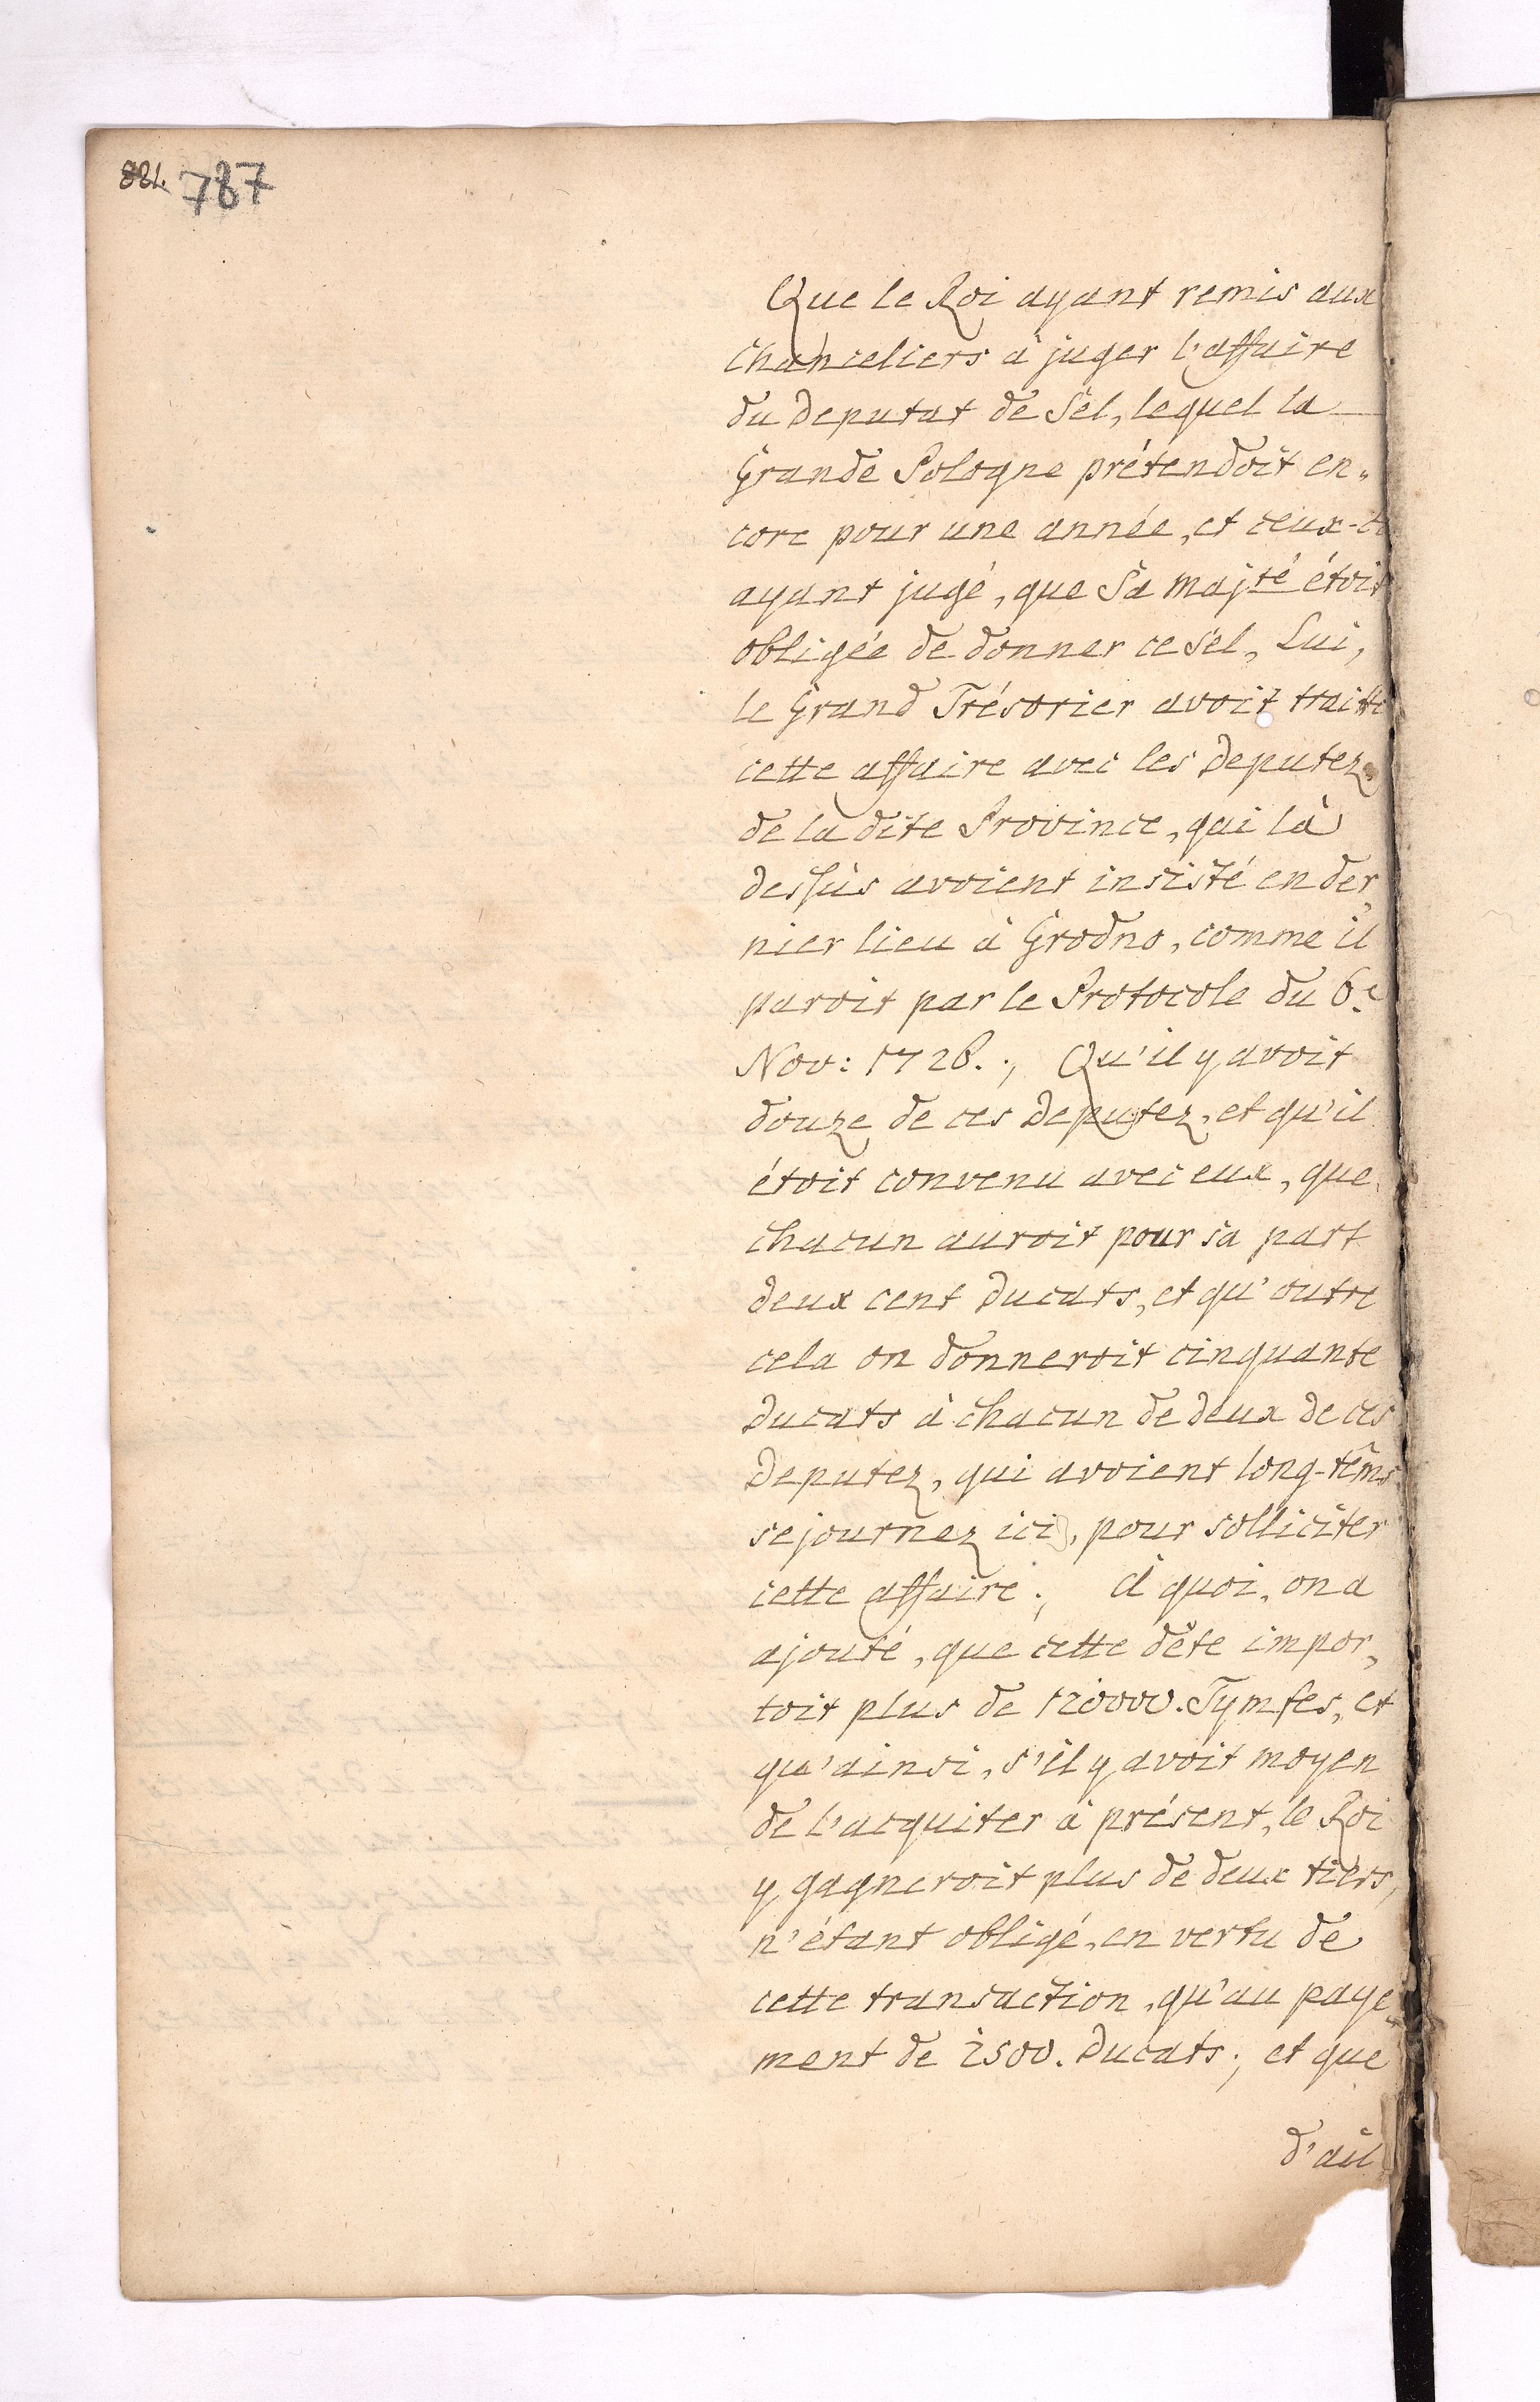 881. 787
Que le Roi ayant remis aux
Chanceliers à juger l'affaire
du Deputat de Sel, lequel la
Grande Pologne prétendoit en„
core pour une année, et ceux-ci
ayant jugé, que Sa Majté étoit
obligée de donner ce Sel, Lui,
le Grand Trésorier avoit traitté
cette affaire avec les Deputez
de la dite Province, qui là
dessus avoient insisté en der„
nier lieu à Grodno, comme il
paroit par le Protocole du 6e
Nov: 1726.; Qu'il y avoit
douze de ces Deputez, et qu'il
étoit convenu avec eux, que
chacun auroit pour sa part
deux cent Ducats, et qu'outre
cela on donneroit cinquante
Ducats à chacun de deux de ces
Deputez, qui avoient long-têms
sejournez ici, pour solliciter
cette affaire.; à quoi, on a
ajouté, que cette dête impor„
toit plus de 120000. Tymfes, et
qu'ainsi, s'il y avoit moyen
de l'acquiter à présent, le Roi
y gagneroit plus de deux tiers,
n'étant obligé, en vertu de
cette transaction, qu'au paye„
ment de 2500. Ducats.; et que
d'ail